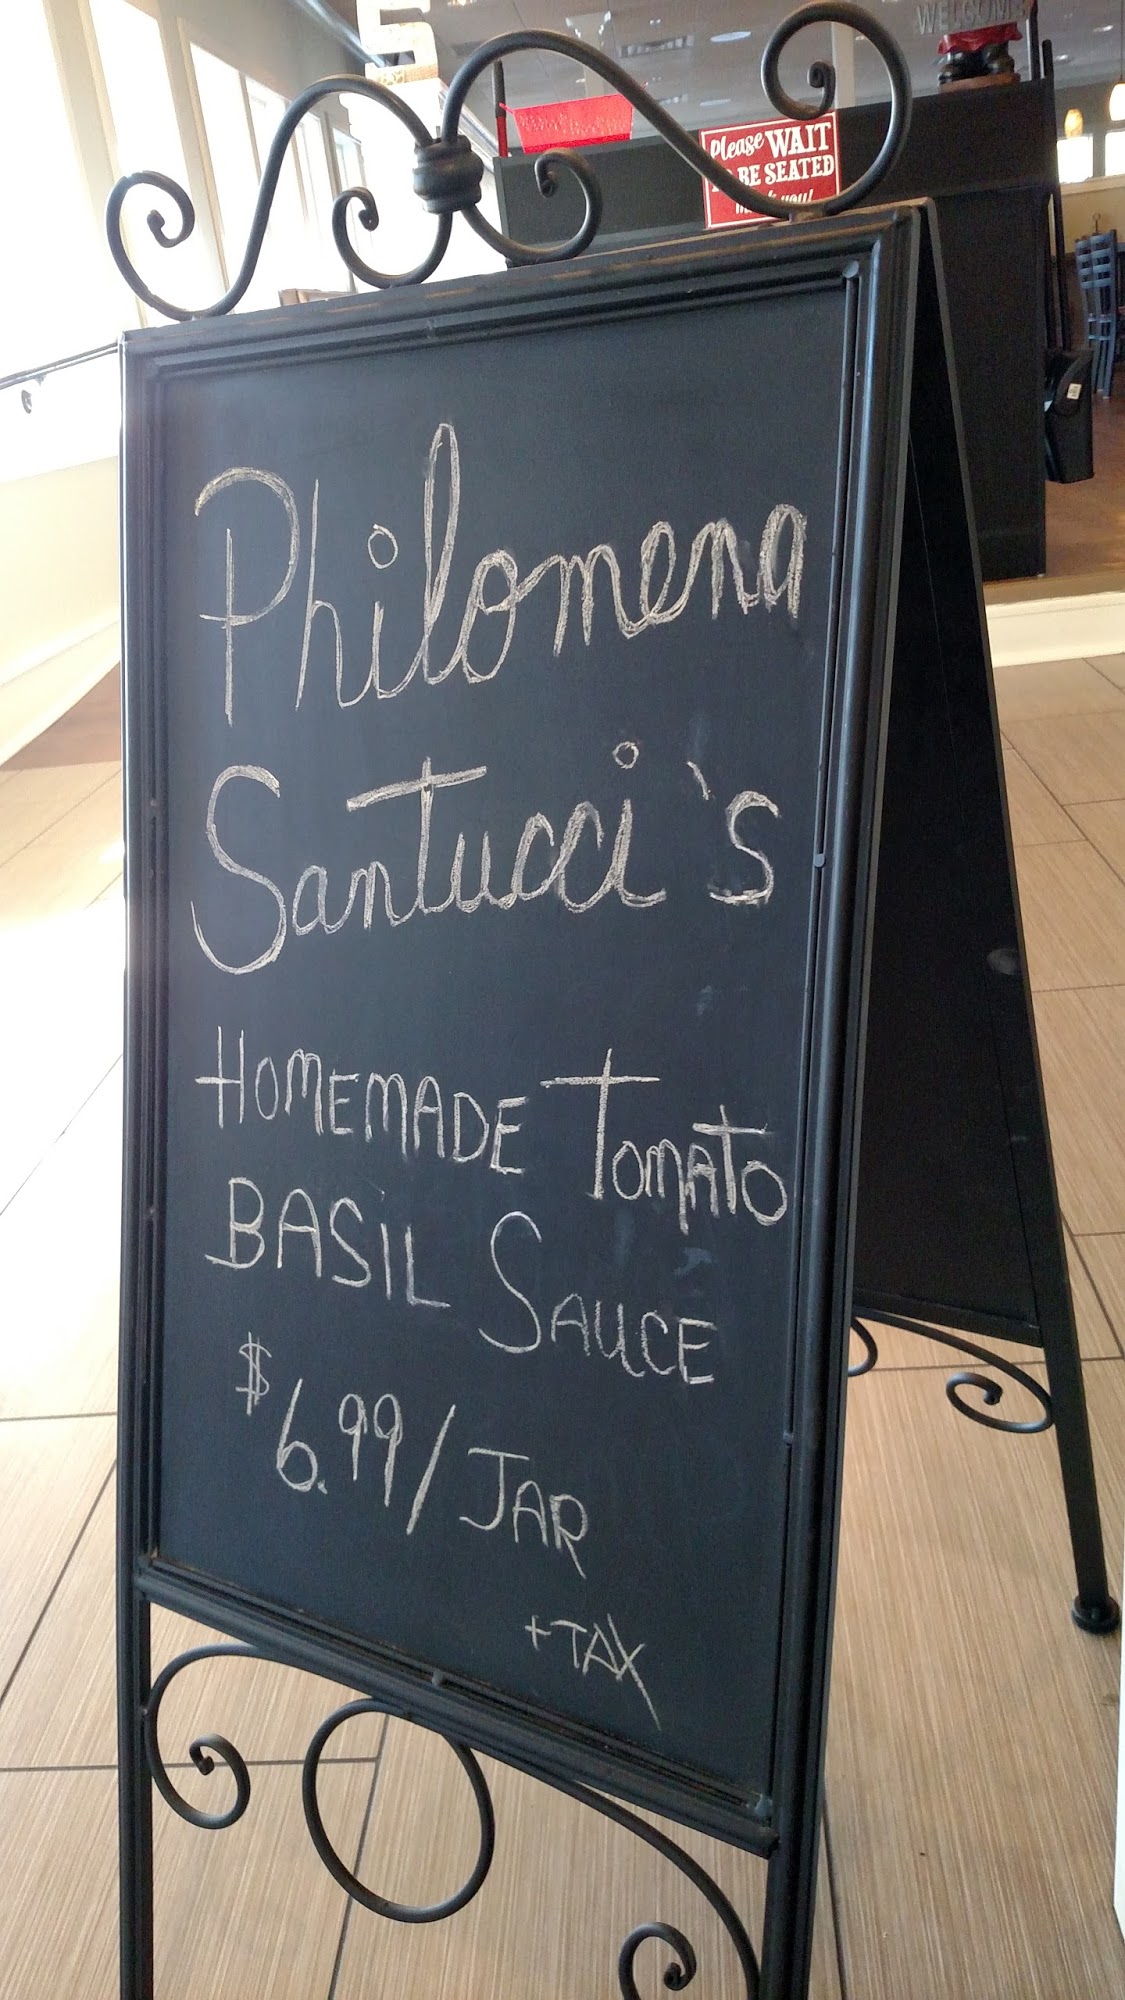 WELCOME
Please WAIT
TO BE SEATED
Philomena
Santucci's
HOMEMADE TOMATO
BASIL SAUCE
$6.99/JAR
+TAX